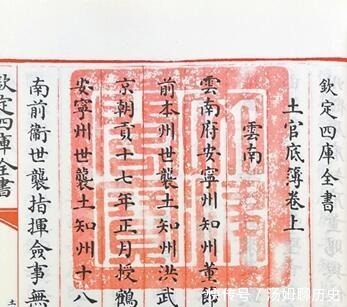 欽定四庫全書
土官底簿卷上
雲南
雲南府安寧州知州董郎
前本州世襲土知州洪武
京朝貢十七年正月授鶴
安寧州世襲土知州十八
南前衛世襲指揮僉事無
欽定四庫全書
快传号/汤姆聊历史